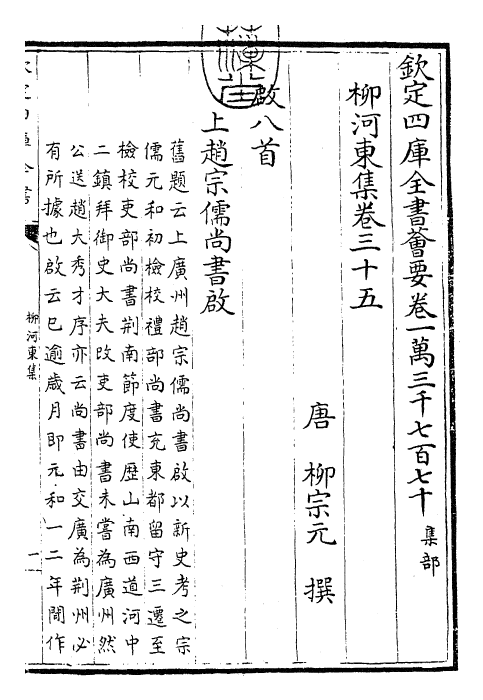 欽定四庫全書薈要卷一萬三千七百七十 集部
柳河東集卷三十五
唐 柳宗元 撰
啟八首
上趙宗儒尚書啟
舊題云上廣州趙宗儒尚書啟以新史考之宗
儒元和初檢校禮部尚書充東都留守三遷至
檢校吏部尚書荆南節度使歴山南西道河中
二鎮拜御史大夫改吏部尚書未嘗為廣州然
公送趙大秀才序亦云尚書由交廣為荆州必
有所據也啟云已逾歲月即元和一二年間作
柳河東集
一